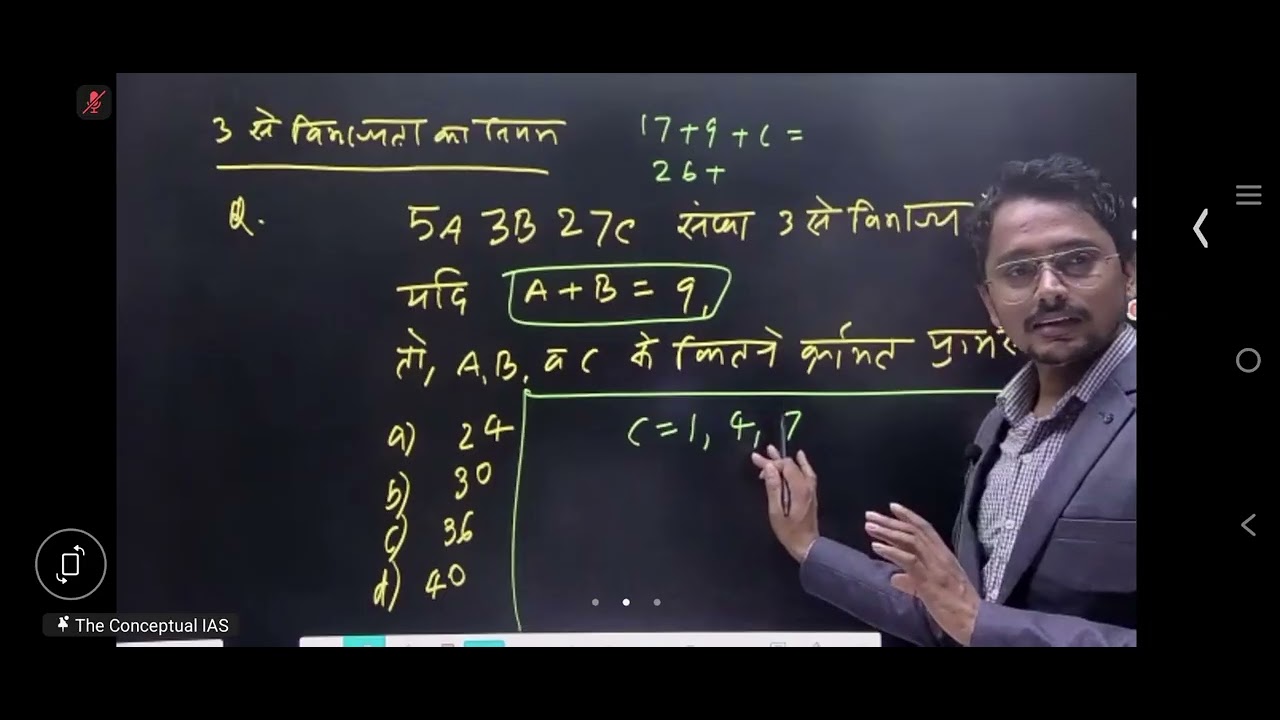 3 से विभाज्यता का नियम
17+9+C =
26+
Q. 5A 3B 27C संख्या 3 से विभाज्य
यदि A+B = 9,
तो, A,B, व C के कितने
a) 24
b) 30
c) 36
d) 40
C=1, 4, 7
The Conceptual IAS